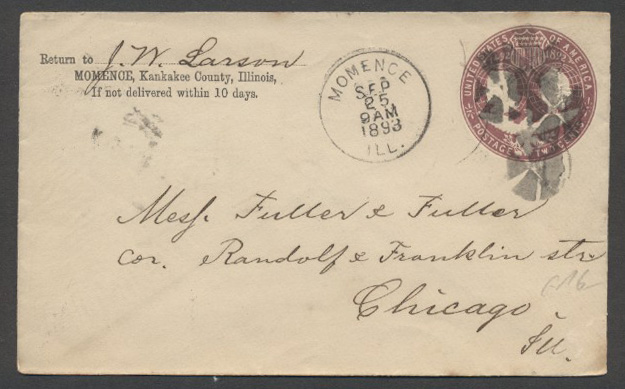 Return to J. W. Larson
MOMENCE, Kankakee County, Illinois,
If not delivered within 10 days.
MOMENCE
SEP
25
9AM
1893
ILL.
UNITED STATES OF AMERICA
1892
POSTAGE TWO
Mess. Fuller & Fuller
cor. Randolf & Franklin str.
Chicago
Ill.